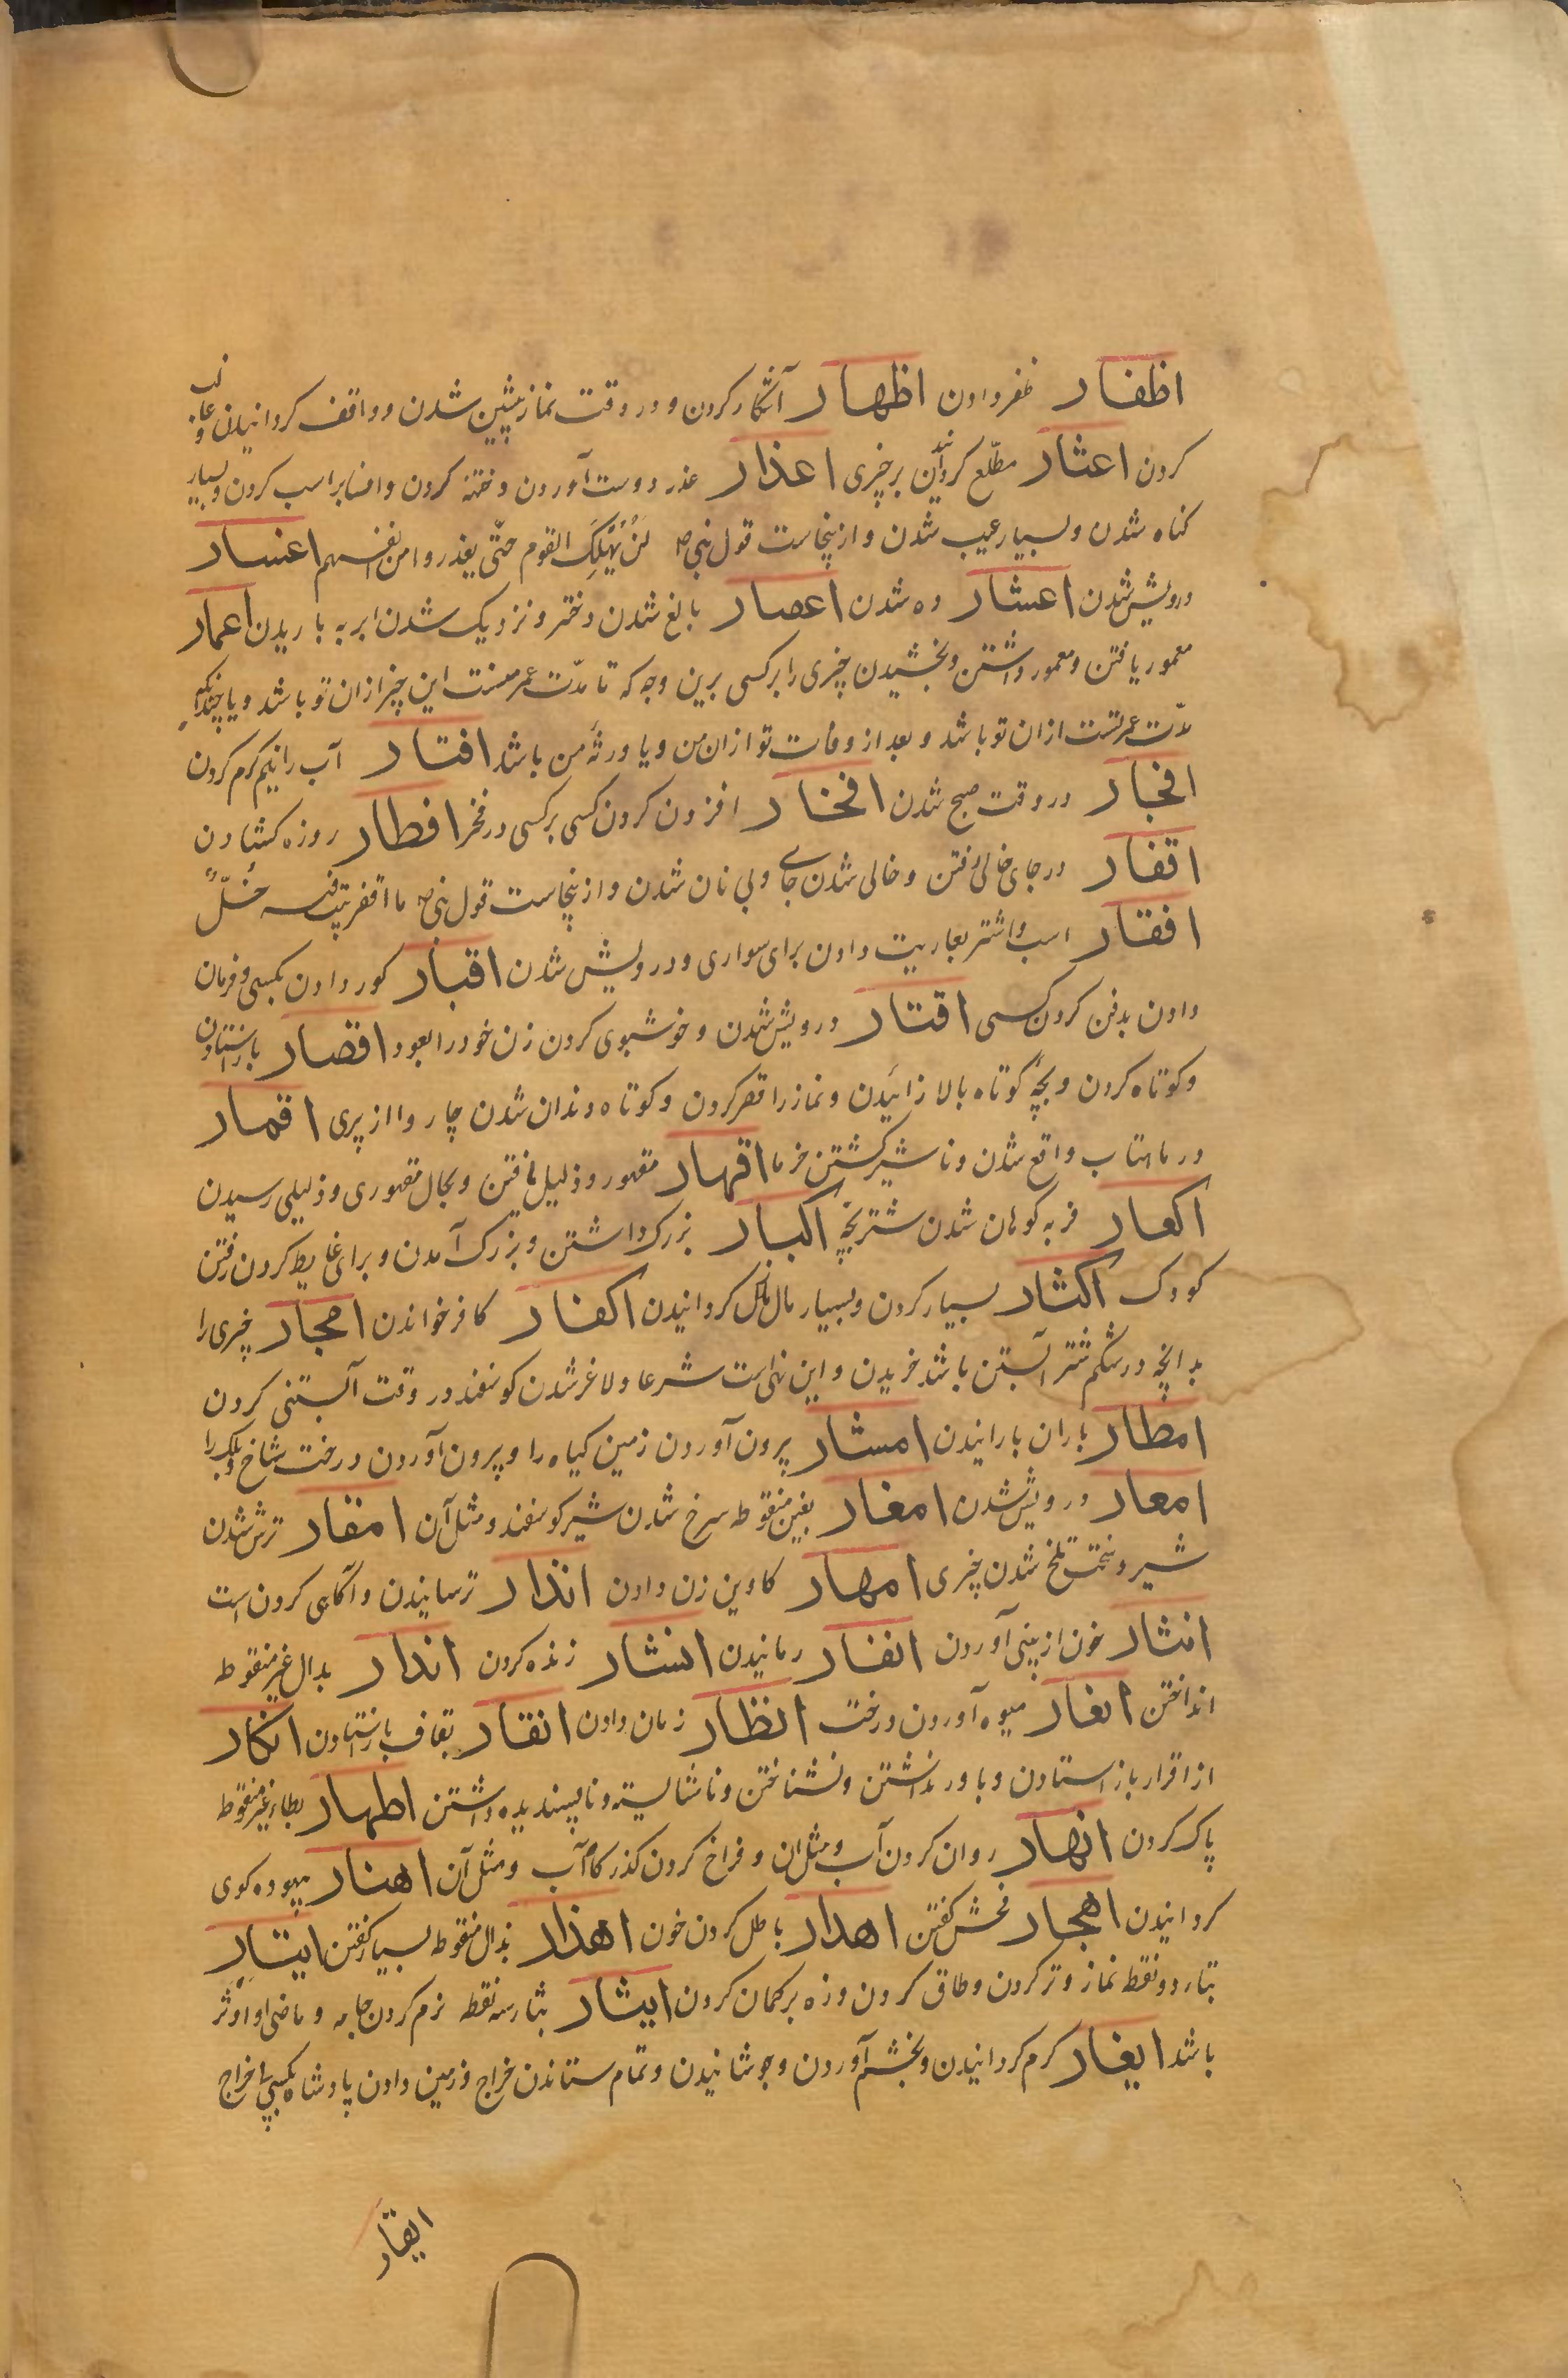 اظفار ظفر دادن اظهار آشکار کردن و در وقت نماز پیشین شدن و واقف کردانیدن و غالب
کردن اعثار مطّلع کردانیدن بر چیزی اعذار عذر دوست آوردن و ختنه کردن و افسار بر اسب کردن و بسیار
کناه شدن و بسیار عیب شدن و ازینجاست قول نبی ص لَنْ یَهْلِکَ القوم حتّی یعذروا من انفسهم اعسار
درویش شدن اعشار ده شدن اعصار بالغ شدن دختر و نزدیک شدن ابر به باریدن اعمار
معمور یافتن و معمور داشتن و بخشیدن چیزی را بر کسی برین وجه که تا مدّت عمر منست این چیز ازان تو باشد و یا چندانکه
مدّت عمر تست ازان تو باشد و بعد از وفات تو ازان من و یا ورثهٔ من باشد افتار آب را نیم کرم کردن
افجار در وقت صبح شدن افخار افزون کردن کسی بر کسی در فخر افطار روزه کشادن
اقفار در جای خالی رفتن و خالی شدن جای و بی نان شدن و ازینجاست قول نبی ص ما اقفر بیت فیه خُلٌّ
افقار اسب و اشتر بعاریت دادن برای سواری و درویش شدن اقبار کور دادن بکسی و فرمان
دادن بدفن کردن کسی اقتار درویش شدن و خوشبوی کردن زن خود را بعود اقصار باز استادن
و کوتاه کردن و بچهٔ کوتاه بالا زائیدن و نماز را قصر کردن و کوتاه دندان شدن چاروا از پیری اقمار
در ماهتاب واقع شدن و ناشیر کشتن خرما اقهار مقهور و ذلیل یافتن و بحال مقهوری و ذلیلی رسیدن
اکعار فربه کوهان شدن شتر بچه اکبار بزرک داشتن و بزرک آمدن و برای غایط کردن رفتن
کودک اکثار بسیار کردن و بسیار مال کردانیدن اکفار کافر خواندن امجار چیزی را
بدانچه در شکم شتر آبستن باشد خریدن و این نهی است شرعا و لاغر شدن کوسفند در وقت آبستنی کردن
امطار باران بارانیدن امشار بیرون آوردن زمین کیاه را و بیرون آوردن درخت شاخ و برک را
امعار درویش شدن امغار بغین منقوطه سرخ شدن شیر کوسفند و مثل آن امقار ترش شدن
شیر و سخت تلخ شدن چیزی امهار کاوین زن دادن انذار ترسانیدن و آکاهی کردن است
انثار خون از بینی آوردن انفار رمانیدن انشار زنده کردن اندار بدال غیر منقوطه
انداختن انغار میوه آوردن درخت انظار زمان دادن انقار بقاف باز استادن انکار
از اقرار باز استادن و باور نداشتن و نشناختن و ناشایسته و ناپسندیده داشتن اطهار بطاء غیر منقوطه
پاک کردن انهار روان کردن آب و مثل ان و فراخ کردن کذرکاه آب و مثل آن اهنار بیهوده کوی
کردانیدن اهجار فحش کفتن اهدار باطل کردن خون اهذار بذال منقوطه بسیار کفتن ایتار
بتاء دو نقطه نماز وتر کردن و طاق کردن و زه بر کمان کردن ایثار بثاء سه نقطه نرم کردن جامه و ماضی او اوثر
باشد ایغار کرم کردانیدن و بخشم آوردن و جوشانیدن و تمام ستاندن خراج و زمین دادن پادشاه بکسی بی خراج
ایقار